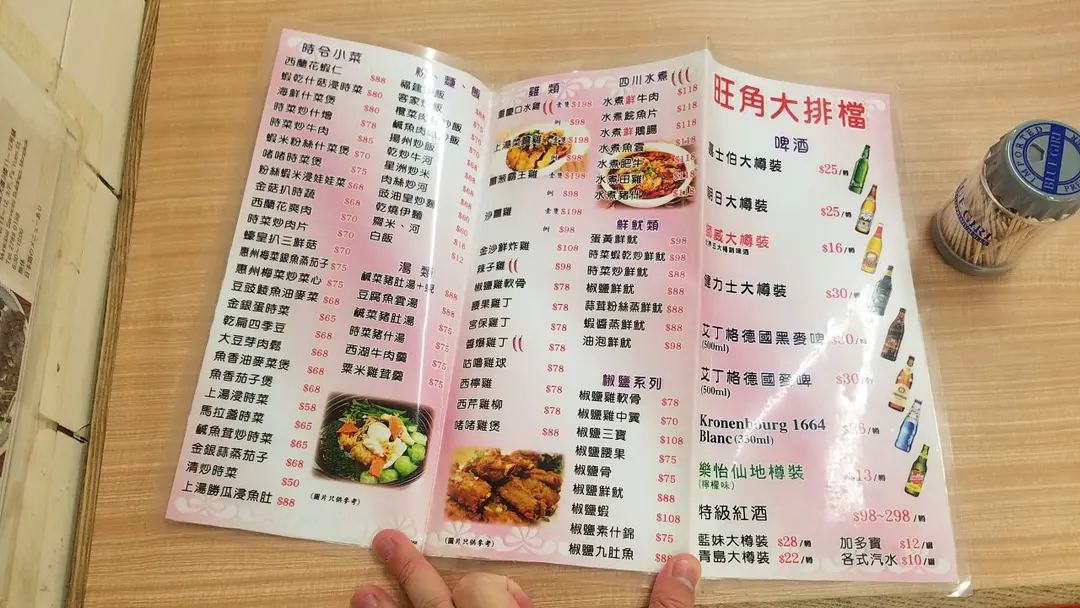 時令小菜
西蘭花蝦仁 $88
蝦乾什菇浸時菜 $80
海鮮什菜煲 $80
時菜炒什燴 $78
時菜炒牛肉 $85
蝦米粉絲什菜煲 $70
啫啫時菜煲 $75
粉絲蝦米浸娃娃菜 $68
金菇扒時蔬 $68
西蘭花爽肉 $70
時菜炒肉片 $70
蠔皇扒三鮮菇 $70
惠州梅菜銀魚蒸茄子 $75
惠州梅菜炒菜心 $75
豆豉鯪魚油麥菜 $68
金銀蛋時菜 $65
乾扁四季豆 $68
大豆芽肉鬆 $68
魚香油麥菜煲 $68
魚香茄子煲 $68
上湯浸時菜 $58
馬拉盞時菜 $65
鹹魚茸炒時菜 $65
金銀蒜蒸茄子 $68
清炒時菜 $50
上湯勝瓜浸魚肚 $88
粉、麵、飯
福建炒飯
客家炒飯
欖菜肉崧炒飯
鹹魚肉崧炒飯
揚州炒飯
乾炒牛河
星洲炒米
肉絲炒河
豉油皇炒麵
乾燒伊麵
齋米、河
白飯 $12
湯類
鹹菜豬肚湯
豆腐魚雲湯 $88
鹹菜豬肚湯 $88
時菜豬什湯 $75
西湖牛肉羹 $75
粟米雞茸羹 $75
(圖片只供參考)
雞類
重慶口水雞 壹隻 $198
例 $98
上湯菜膽雞 $198
例 $98
蔥霸王雞 壹隻 $198
例 $98
沙薑雞 壹隻 $198
例 $98
金沙鮮炸雞 $108
辣子雞 $98
椒鹽雞軟骨 $98
腰果雞丁 $78
宮保雞丁 $78
醬爆雞丁 $78
咕嚕雞球 $78
西檸雞 $78
西芹雞柳 $78
啫啫雞煲 $88
(圖片只供參考)
四川水煮
水煮鮮牛肉 $118
水煮鯇魚片 $118
水煮鮮鵝腸 $118
水煮魚雲 $118
水煮肥牛 $118
水煮田雞 $118
水煮豬什 $118
鮮魷類
蛋黃鮮魷 $98
時菜蝦乾炒鮮魷 $98
時菜炒鮮魷 $88
椒鹽鮮魷 $88
蒜茸粉絲蒸鮮魷 $88
蝦醬蒸鮮魷 $88
油泡鮮魷 $98
椒鹽系列
椒鹽雞軟骨 $78
椒鹽雞中翼 $70
椒鹽三寶 $108
椒鹽腰果 $68
椒鹽骨 $75
椒鹽鮮魷 $88
椒鹽蝦 $108
椒鹽素什錦 $75
椒鹽九肚魚
旺角大排檔
啤酒
嘉士伯大樽裝 $25/樽
朝日大樽裝 $25/樽
獅威大樽裝 $16/樽
健力士大樽裝 $30/樽
艾丁格德國黑麥啤 $30/樽
(500ml)
艾丁格德國麥啤 $30/樽
(500ml)
Kronenbourg 1664
Blanc (330ml) /樽
樂怡仙地樽裝 $13/樽
(檸檬味)
特級紅酒 $98~298/樽
藍妹大樽裝 $28/樽 加多寶 $12/罐
青島大樽裝 $22/樽 各式汽水 $10/罐
IMPORTED
BLUE GIRL